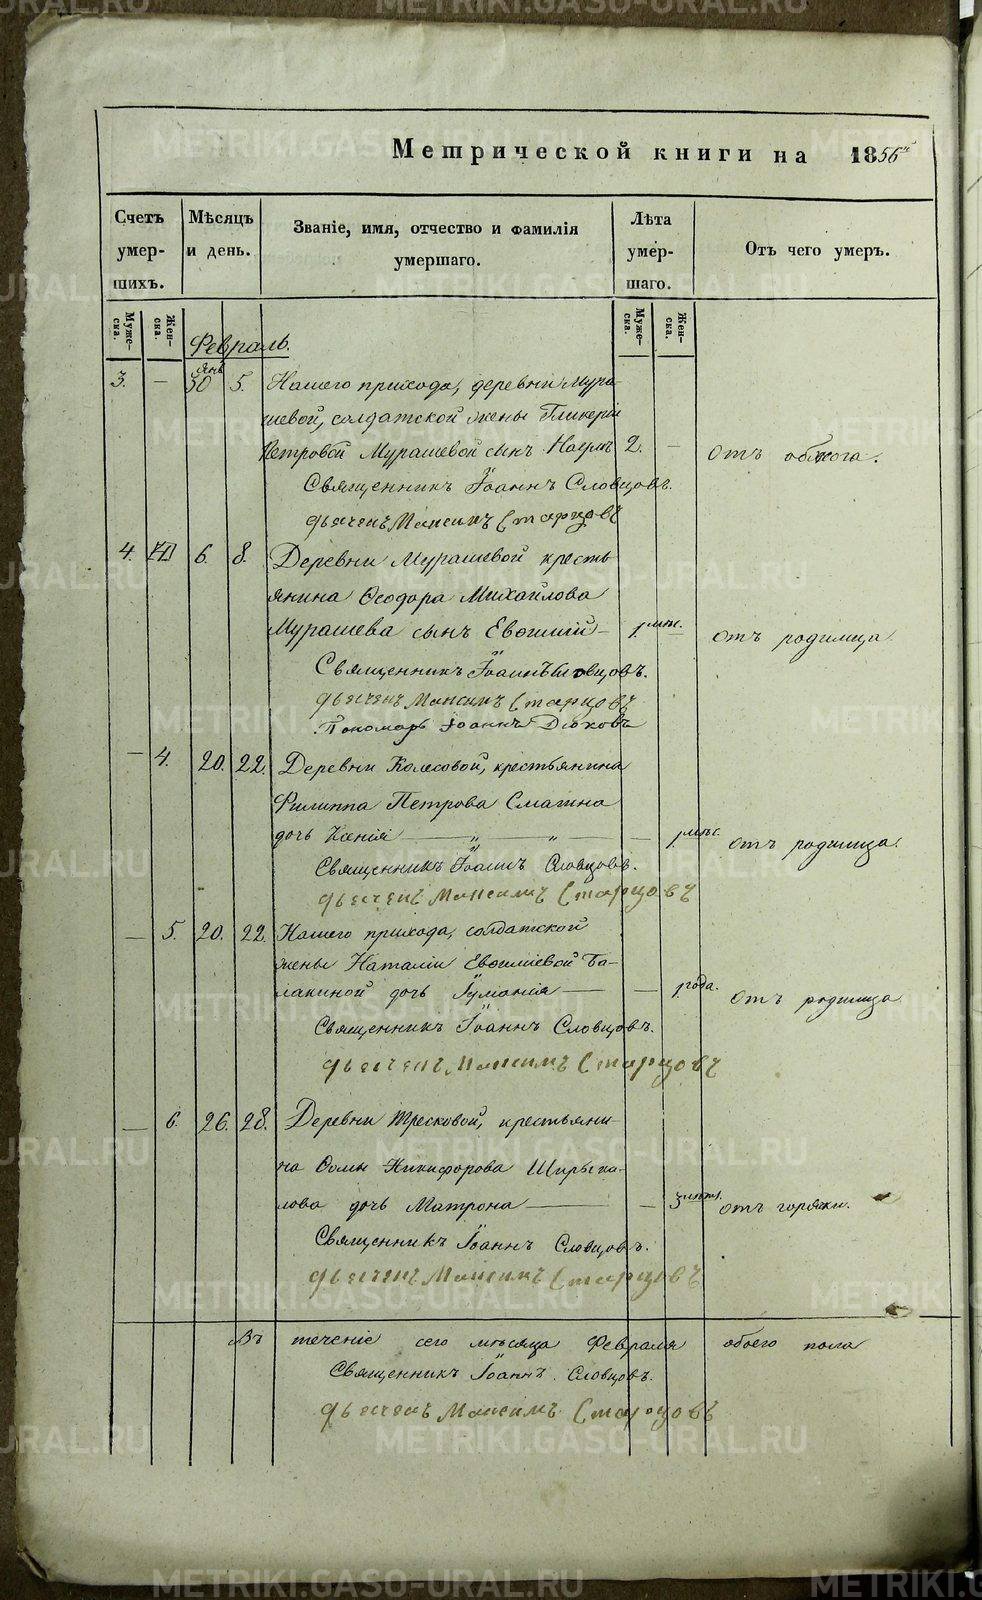 Метрической книги на 1856й
Счетъ умер-шихъ.
Мѣсяцъ и день.
Званіе, имя, отчество и фамилія умершаго.
Лѣта умер-шаго.
Отъ чего умеръ.
Муже-ска.
Жен-ска.
Муже-ска.
Жен-ска.
Февраль.
3. — янв 30 5. Нашего прихода, деревни Мура-
шевой, солдатской жены Гликеріи
Петровой Мурашевой сынъ Наумъ 2. — отъ обжога.
Священникъ Іоаннъ Словцовъ.
дьячекъ Максимъ Старцовъ
4. 6. 8. Деревни Мурашевой кресть
янина Ѳеодора Михайлова
Мурашева сынъ Евѳимій — 1 мѣс. отъ родимца
Священникъ Іоаннъ Словцовъ.
дьячекъ Максимъ Старцовъ
Пономарь Іоаннъ
— 4. 20. 22. Деревни Колесовой, крестьянина
Филиппа Петрова Смагина
дочь Ксенія — „ — „ — — 1 мѣс. отъ родимца.
Священникъ Іоаннъ Словцовъ.
дьячекъ Максимъ Старцовъ
— 5. 20. 22. Нашего прихода, солдатской
жены Наталіи Евѳиміевой Ба-
лакиной дочь Іуліанія — — 1 года. отъ родимца
Священникъ Іоаннъ Словцовъ.
дьячекъ Максимъ Старцовъ
— 6. 26. 28. Деревни Тресковой, крестьяни-
на Ѳомы Никифорова Ширыка-
лова дочь Матрона — — 3 отъ горячки.
Священникъ Іоаннъ Словцовъ.
дьячекъ Максимъ Старцовъ
Въ теченіе сего мѣсяца Февраля обоего пола
Священникъ Іоаннъ Словцовъ.
дьячекъ Максимъ Старцовъ
METRIKI.GASO-URAL.RU